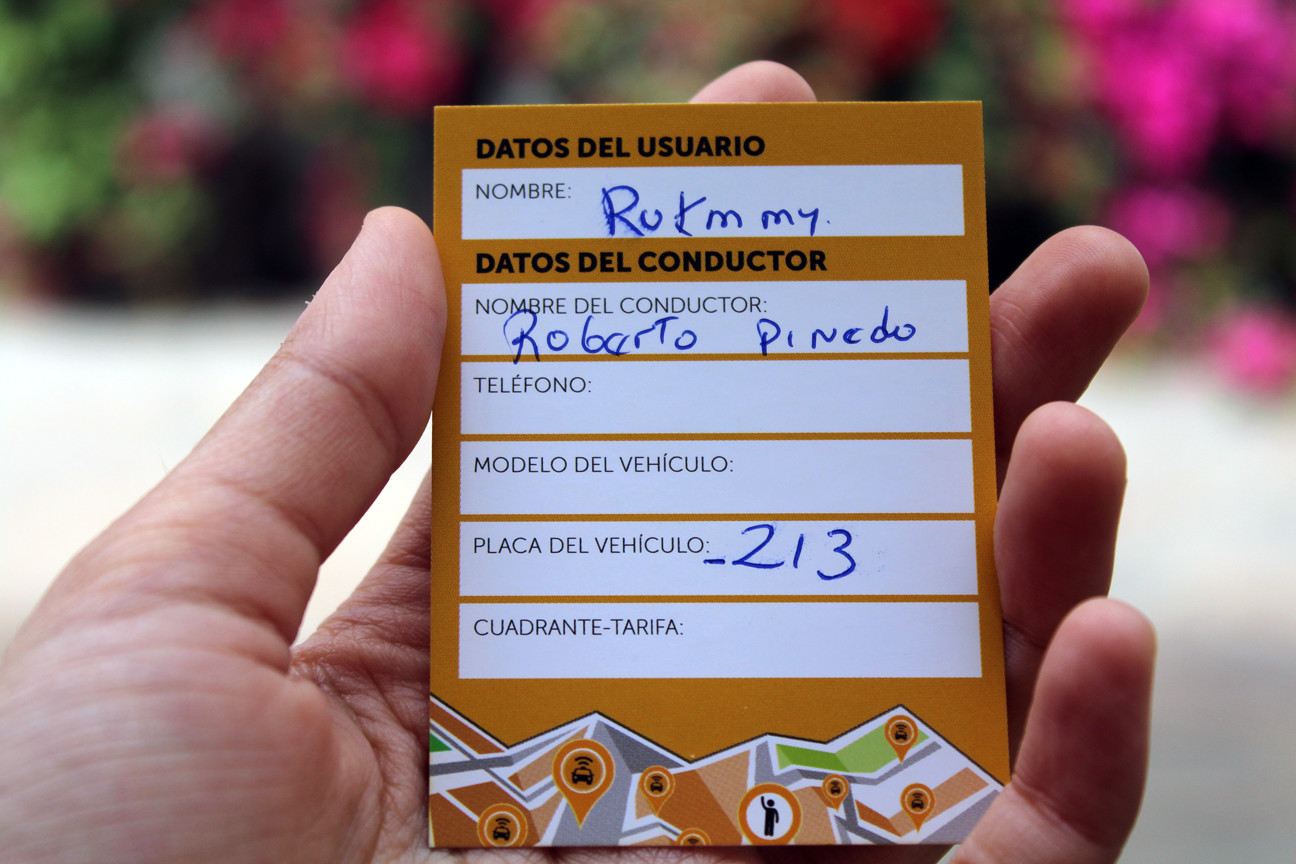 DATOS DEL USUARIO
NOMBRE: Rutmmy.
DATOS DEL CONDUCTOR
NOMBRE DEL CONDUCTOR:
Roberto Pinedo
TELÉFONO:
MODELO DEL VEHÍCULO:
PLACA DEL VEHÍCULO: -213
CUADRANTE-TARIFA: